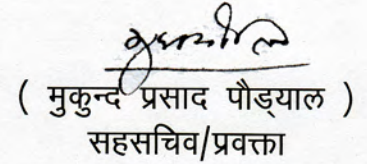 ( मुकुन्द प्रसाद पौड्याल )
सहसचिव/प्रवक्ता